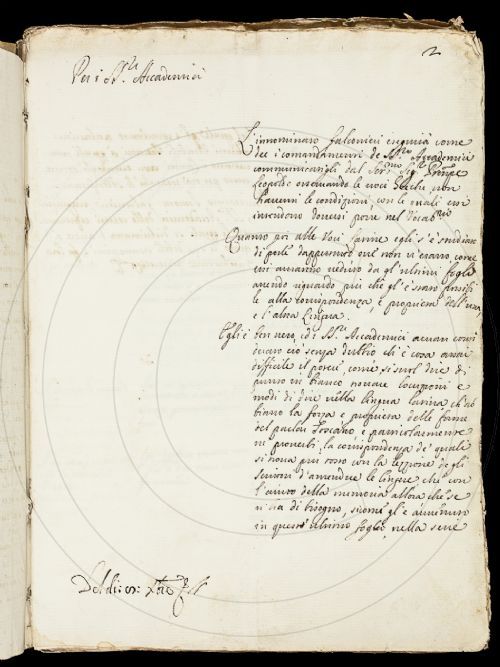 2
Per i SS.ri Accademici
L'innominato Falconieri eseguirà come
dee i comandamenti de SS.ri Accademici
communicatigli dal Ser.mo Sig. Principe
Leopoldo
le voci
non
havervi le condizioni, con le quali essi
intendono doversi porre nel Vocab.rio
Quanto poi alle Voci latine egli s'è studiato
di porle dappertutto ove non v'erano, come
essi avranno veduto da gl'ultimi fogli
avendo riguardo più che gl'è stato possibi
le alla corrispondenza, e proprietà dell'una,
e l'altra Lingua.
Egli è ben vero, ed i SS.ri Accademici avran consi
derato ciò senza dubbio ch'è cosa assai
difficile il porsi, come si suol dire di
punto in bianco a trovare locuzioni e
modi di dire nella lingua latina ch'ab
biano la forza e proprietà delle forme
del parlar Toscano e particolarmente
ne proverbi, la corrispondenza de' quali
si trova più tosto con la lezzione degli
scrittori d'amendue le lingue che con
l'aiuto della memoria allora che se
n'ha di bisogno, sicome gl'è avvenuto
in quest'ultimo foglio, nella serie